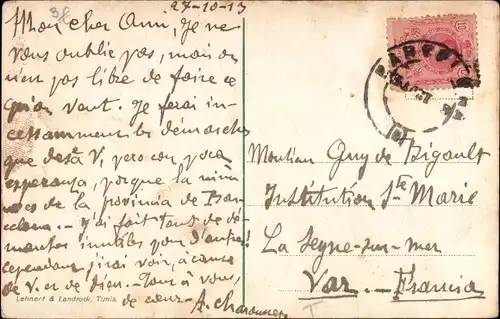 27-10-13
Mon cher Ami, Je ne
vous oublie pas, mais on
n'est pas libre de faire ce
qu'on veut. Je ferai in-
cessamment les démarches
que desea V, pero con poca
esperanza, porque la
de la provincia de Bar-
celona.- J'ai fait tant de dé-
marches inutiles pour d'autres!
Cependant j'irai voir, à cause
de V. et de Dieu.- Tout à vous,
de cœur.
Lehnert & Landrock, Tunis.
Monsieur Guy de Bigault
Institution Ste Marie
La Seyne-sur-mer
Var.- Francia
T